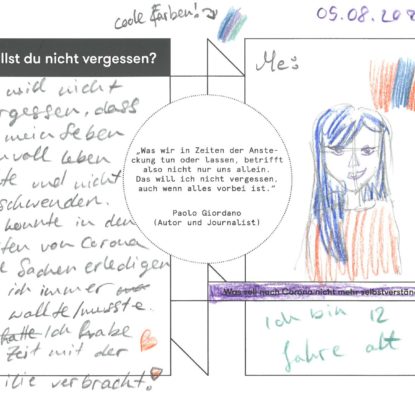 coole Farben!
05.08.202
llst du nicht vergessen?
will nicht
rgessen, dass
mein Leben
nvoll leben
te und nicht
schwenden.
konnte in den
ten von Corona
e Sachen erledigen
ich immer
wollte/musste.
hatte Ich habe
Zeit mit der
ilie verbracht!
„Was wir in Zeiten der Anste-
ckung tun oder lassen, betrifft
also nicht nur uns allein.
Das will ich nicht vergessen,
auch wenn alles vorbei ist.“
Paolo Giordano
(Autor und Journalist)
Me:
Was soll nach Corona nicht mehr selbstverstän
Ich bin 12
Jahre alt